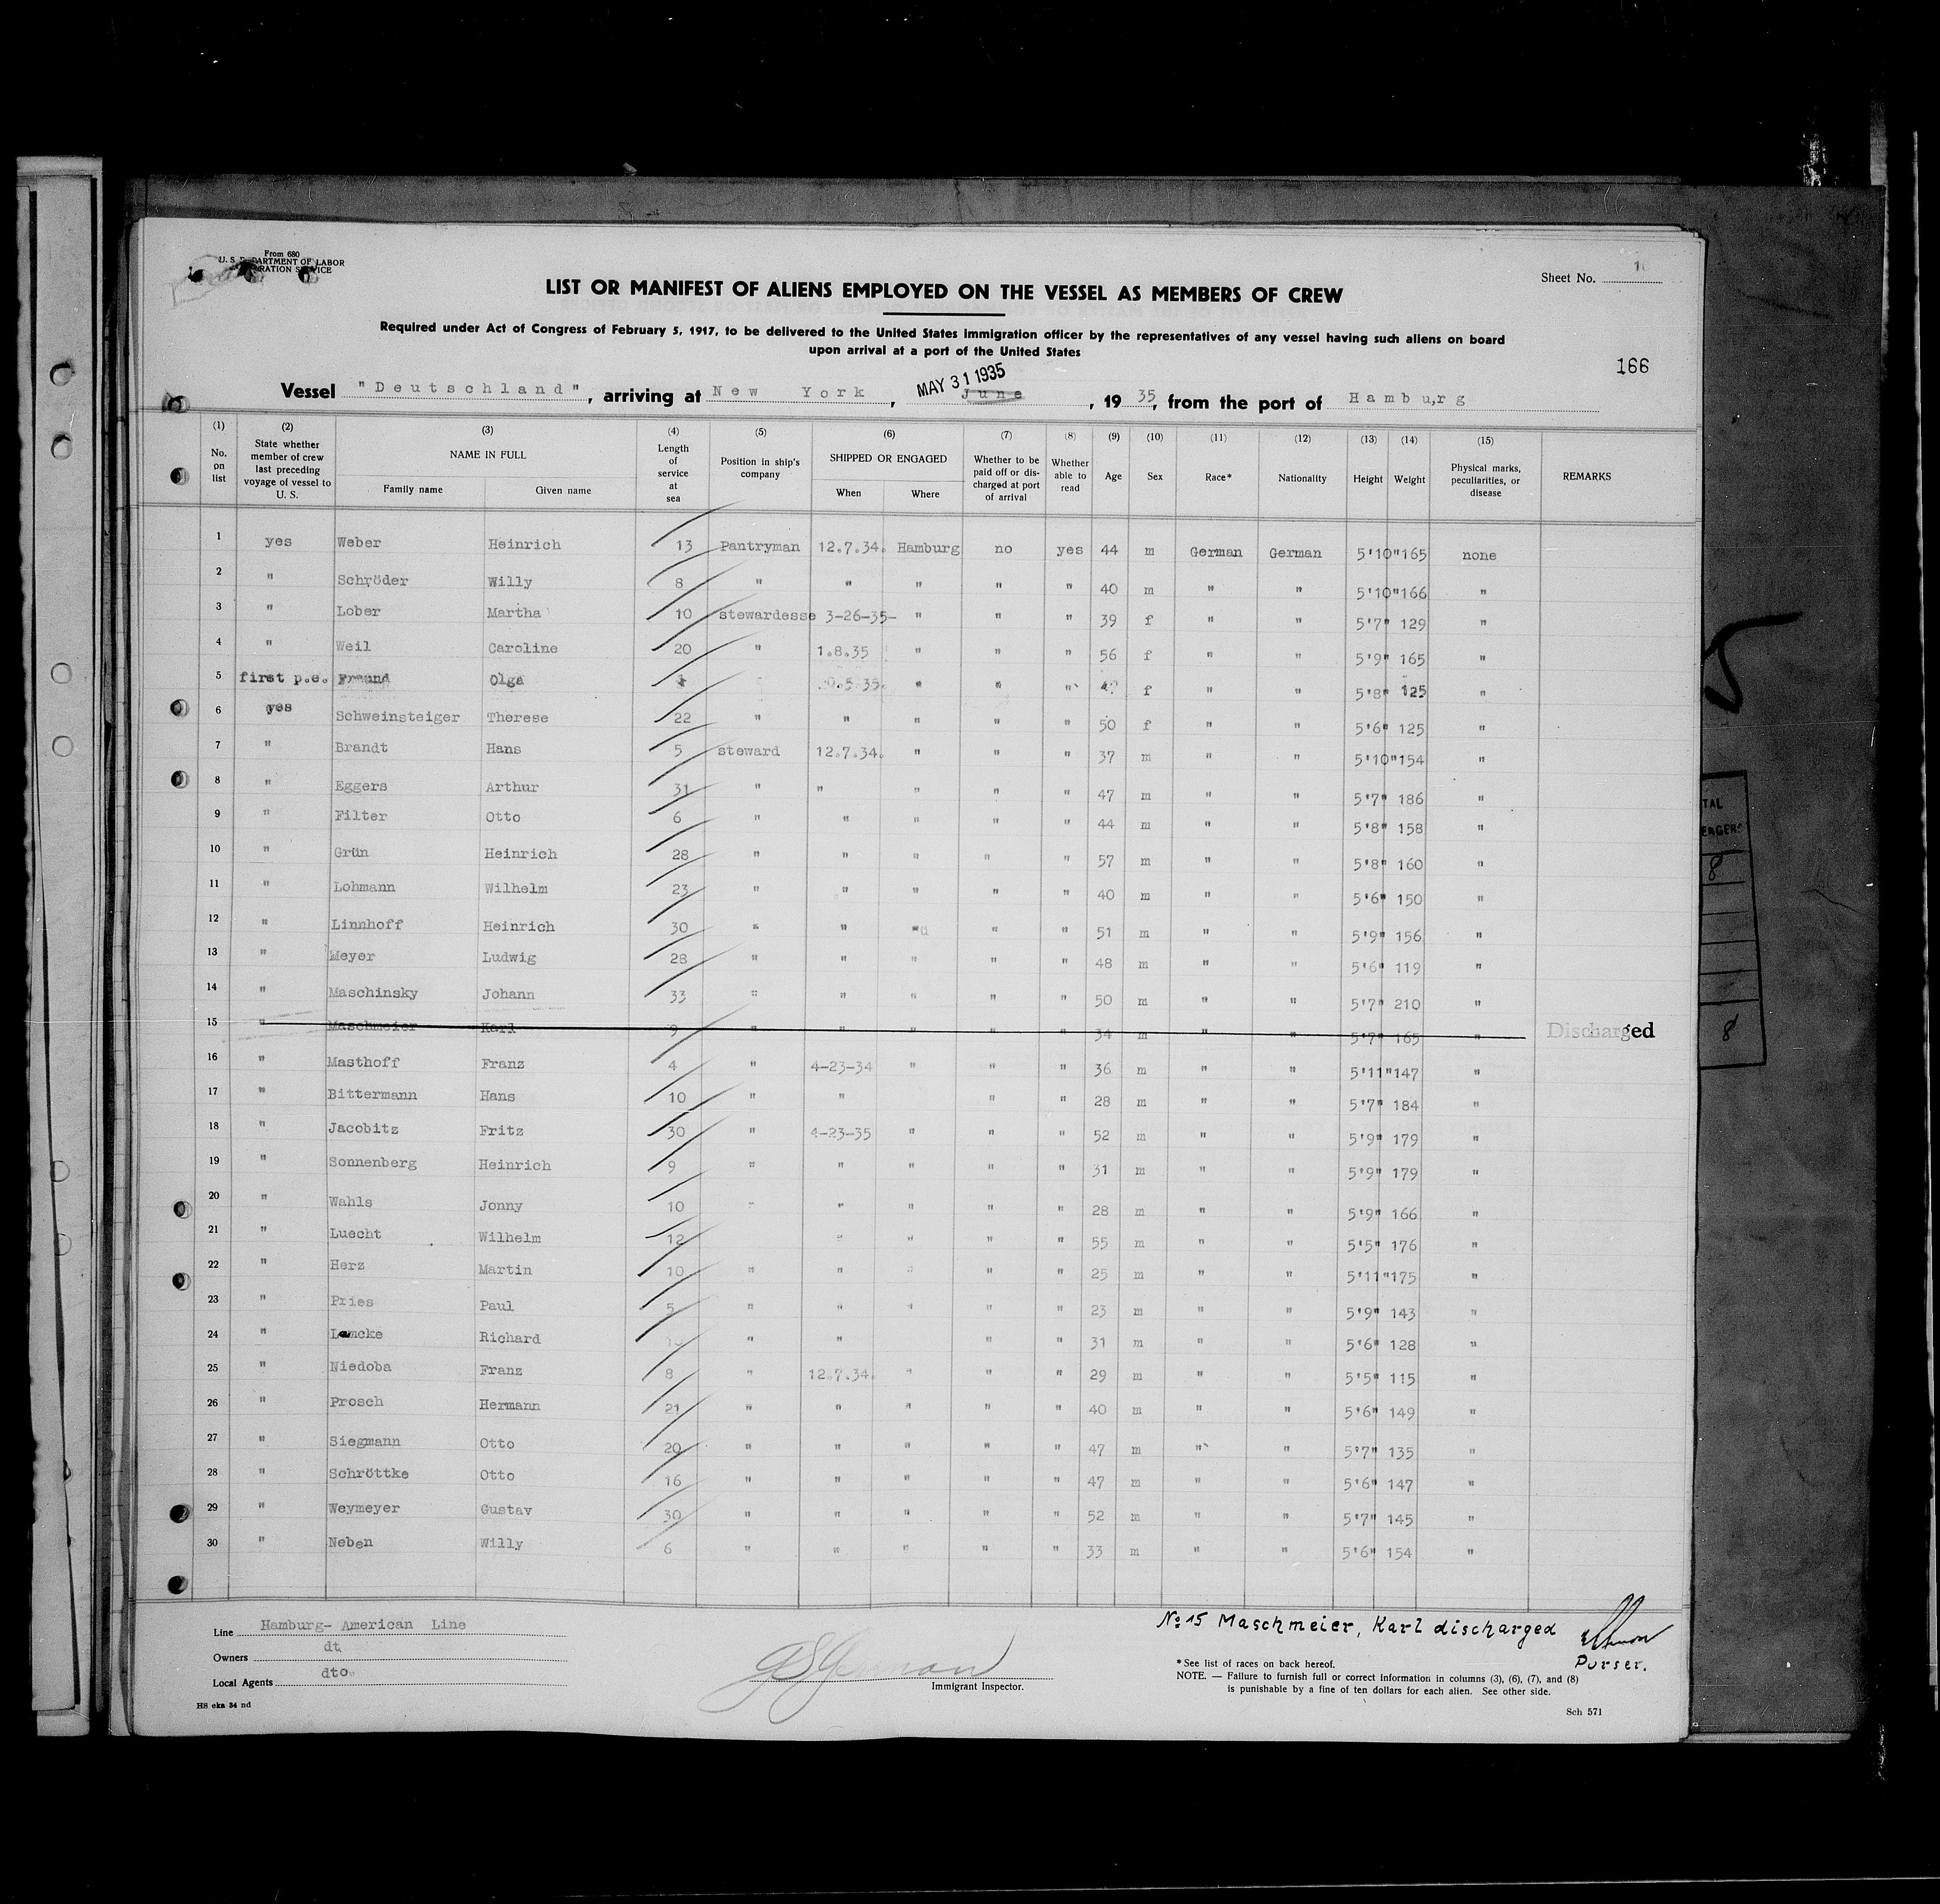 From 680
U. S. DEPARTMENT OF LABOR
Sheet No. 1
LIST OR MANIFEST OF ALIENS EMPLOYED ON THE VESSEL AS MEMBERS OF CREW
Required under Act of Congress of February 5, 1917, to be delivered to the United States immigration officer by the representatives of any vessel having such aliens on board
upon arrival at a port of the United States
166
Vessel "Deutschland", arriving at New York, MAY 31 1935 June, 1935, from the port of Hamburg
(1) (2) (3) (4) (5) (6) (7) (8) (9) (10) (11) (12) (13) (14) (15)
No. on list | State whether member of crew last preceding voyage of vessel to U. S. | NAME IN FULL Family name Given name | Length of service at sea | Position in ship's company | SHIPPED OR ENGAGED When Where | Whether to be paid off or discharged at port of arrival | Whether able to read | Age | Sex | Race* | Nationality | Height | Weight | Physical marks, peculiarities, or disease | REMARKS
1 yes Weber Heinrich 13 Pantryman 12.7.34. Hamburg no yes 44 m German German 5'10" 165 none
2 " Schröder Willy 8 " " " " " 40 m " " 5'10" 166 "
3 " Lober Martha 10 stewardesse 3-26-35- " " " 39 f " " 5'7" 129 "
4 " Weil Caroline 20 " 1.8.35 " " " 56 f " " 5'9" 165 "
5 first p.e. Olga .5.35. " " " f " " 5'8" 125 "
6 yes Schweinsteiger Therese 22 " " " " " 50 f " " 5'6" 125 "
7 " Brandt Hans 5 steward 12.7.34. " " " 37 m " " 5'10" 154 "
8 " Eggers Arthur 31 " " " " " 47 m " " 5'7" 186 "
9 " Filter Otto 6 " " " " " 44 m " " 5'8" 158 "
10 " Grün Heinrich 28 " " " " " 57 m " " 5'8" 160 "
11 " Lohmann Wilhelm 23 " " " " " 40 m " " 5'6" 150 "
12 " Linnhoff Heinrich 30 " " " " " 51 m " " 5'9" 156 "
13 " Meyer Ludwig 28 " " " " " 48 m " " 5'6" 119 "
14 " Maschinsky Johann 33 " " " " " 50 m " " 5'7" 210 "
15 " Maschmeier Karl 9 " " " " " 34 m " " 5'7" 165 " Discharged
16 " Masthoff Franz 4 " 4-23-34 " " " 36 m " " 5'11" 147 "
17 " Bittermann Hans 10 " " " " 28 m " " 5'7" 184 "
18 " Jacobitz Fritz 30 " 4-23-35 " " " 52 m " " 5'9" 179 "
19 " Sonnenberg Heinrich 9 " " " " " 31 m " " 5'9" 179 "
20 " Wahls Jonny 10 " " " " " 28 m " " 5'9" 166 "
21 " Luecht Wilhelm 12 " " " " 55 m " " 5'5" 176 "
22 " Herz Martin 10 " " " " " 25 m " " 5'11" 175 "
23 " Pries Paul 5 " " " " " 23 m " " 5'9" 143 "
24 " Lamcke Richard " " " " 31 m " " 5'6" 128 "
25 " Niedoba Franz 8 " 12.7.34. " " " 29 m " " 5'5" 115 "
26 " Prosch Hermann 21 " " " " " 40 m " " 5'6" 149 "
27 " Siegmann Otto 20 " " " " " 47 m " " 5'7" 135 "
28 " Schröttke Otto 16 " " " " " 47 m " " 5'6" 147 "
29 " Weymeyer Gustav 30 " " " " " 52 m " " 5'7" 145 "
30 " Neben Willy 6 " " " " " 33 m " " 5'6" 154 "
Line Hamburg- American Line
Owners dt.
Local Agents dto.
H8 eka 34 nd
Immigrant Inspector.
No 15 Maschmeier, Karl discharged
Purser.
* See list of races on back hereof.
NOTE. — Failure to furnish full or correct information in columns (3), (6), (7), and (8)
is punishable by a fine of ten dollars for each alien. See other side.
Sch 571
8
8